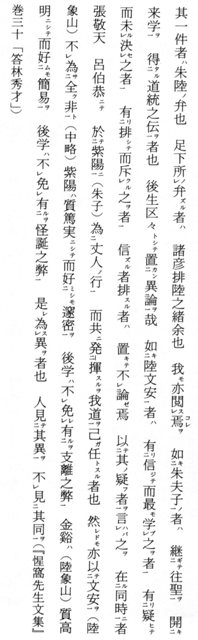 其一件者ハ朱陸ノ弁也　足下所ﾚ弁ズル者ハ　諸彦排陸之緒余也　我モ亦閲ﾚスﾞ之コレヲ　如キ二朱夫子ノ一者ハ　継ギ二往聖ヲ一　開キ二
来学ヲ一　得タル二道統之伝ヲ一者也　後生区々トシテ　置カン二異論ヲ一哉　如キ二陸文安ノ一者ハ　有リ二信ジテ而最モ学ブ之ヲ者一　有リ二疑ヒ
而未ダﾚ決セ之者一　有リ二排シテ而斥クル之ヲ者一　信ズル者排スル者ハ　置キテ不ﾚ論ゼ焉　以テ二其ノ疑フ者ヲ一言ハバ之ヲ　在ル二同時ニ一者
張敬夫　呂伯恭ニテ　於テ二紫陽ニ一（朱子）為二丈人ノ行一　而共ニ発二揮スルヲ我道ヲ一己ガ任トスル者也　然レドモ亦以テ二文安ヲ一（陸
象山）不ﾚ為サ二全ク非ト一（中略）紫陽ハ質篤実ニシテ而好ミシモ二邃密ヲ一　後学ハ不ﾚ免レ有ルヲ二支離之弊一　金谿ハ（陸象山）質高
明ニシテ而好ムモ二簡易ヲ一　後学ハ不ﾚ免レ有ルヲ二怪誕之弊一　是レ為ﾚス異ヲ者也　人見テ二其異ヲ一　不ﾚ見二其同ヲ一（『惺窩先生文集』
巻三十「答林秀才」）